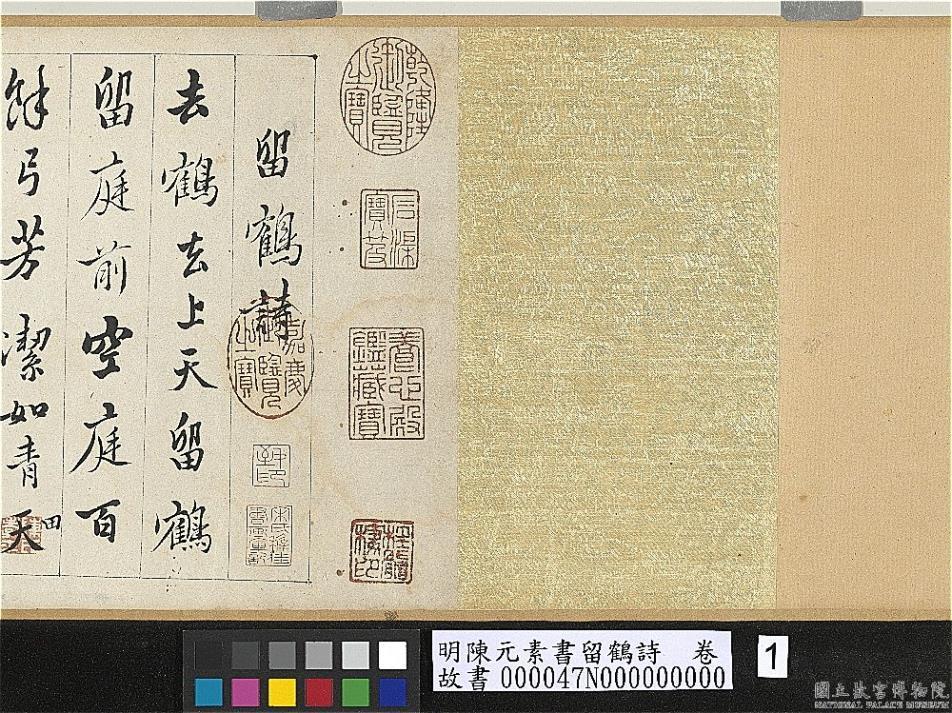 乾隆御覽之寶
石渠寶笈
養心殿鑑藏寶
留鶴詩
嘉慶御覽之寶
去鶴去上天留鶴
留庭前空庭百
餘弓芳潔如青天
田
明陳元素書留鶴詩 卷
故書 000047N000000000
1
國立故宮博物院
NATIONAL PALACE MUSEUM